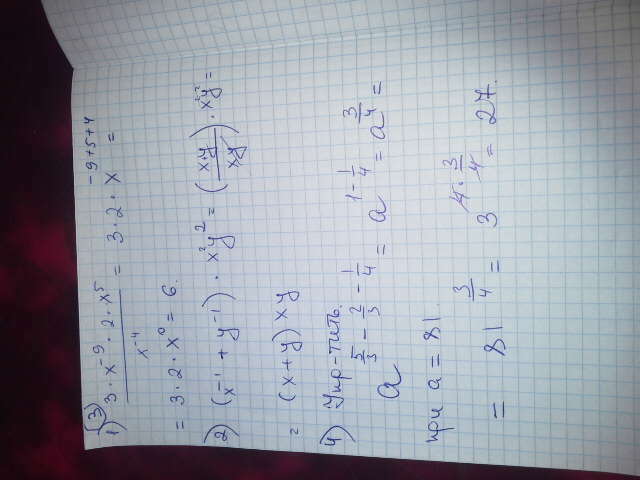 ③
1) (3 · x⁻⁹ · 2 · x⁵) / x⁻⁴ = 3 · 2 · x⁻⁹⁺⁵⁺⁴ =
= 3 · 2 · x⁰ = 6.
2) (x⁻¹ + y⁻¹) · x²y² = (x·y / xy) · x²y² =
= (x + y) xy
4) Упр-тить.
a^(5/3 − 2/3 − 1/4) = a^(1 − 1/4) = a^(3/4) =
при a = 81.
= 81^(3/4) = 3^(4 · 3/4) = 27.